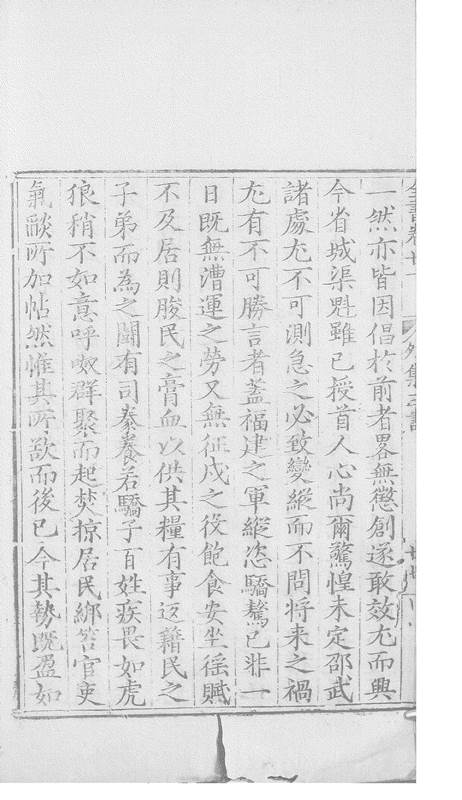 全書卷廿一
外集三書
一然亦皆因倡於前者畧無懲創遂敢效尤而興
今省城渠魁雖已授首人心尚爾驚惶未定邵武
諸處尤不可測急之必致變縱而不問將來之禍
尤有不可勝言者蓋福建之軍縱恣驕驁已非一
日既無漕運之勞又無征戍之役飽食安坐徭賦
不及居則朘民之膏血以供其糧有事返藉民之
子弟而為之鬭有司豢養若驕子百姓疾畏如虎
狼稍不如意呼呶群聚而起焚掠居民綁笞官吏
氣燄所加帖然惟其所欲而後已今其勢既盈如